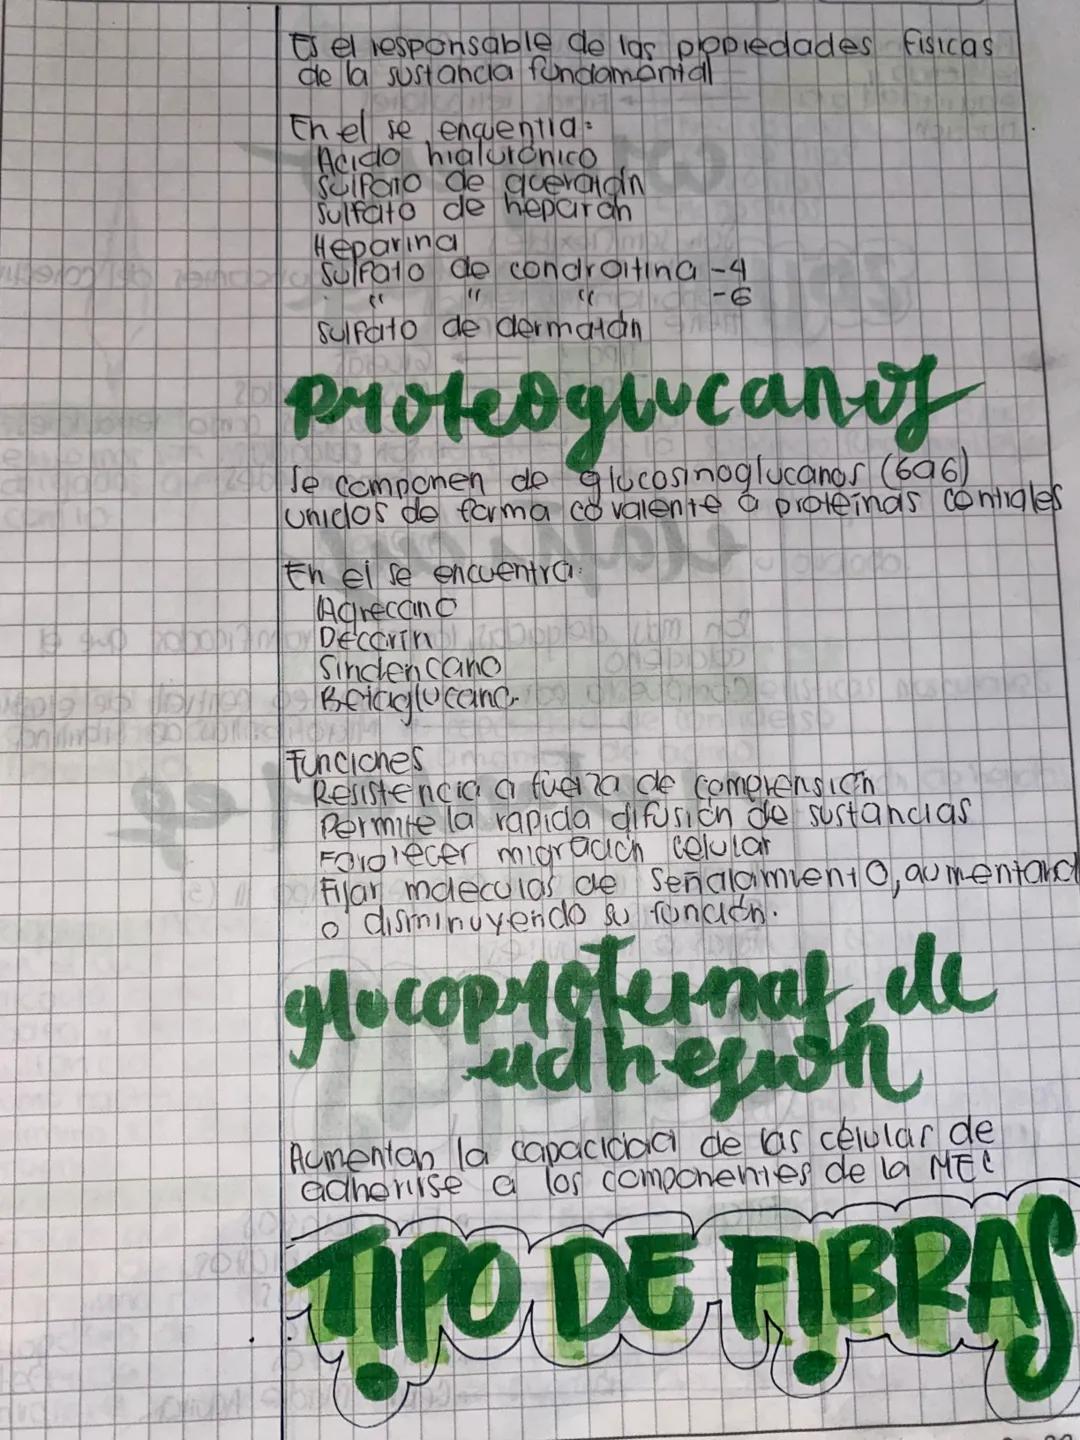 Es el responsable de las propiedades fisicas
de la sustancia fundamental
En el se encuentra:
Acido hialuronico
Sulfato de queratán
Sulfato de heparán
Heparina
Sulfato de condroitina -4
" " " -6
Sulfato de dermatán
Proteoglucanos
Se componen de glucosinoglucanos (GAG)
unidos de forma covalente a proteínas centrales
En el se encuentra:
Agrecano
Decorin
Sindencano
Betaglucano.
Funciones
Resistencia a fuerza de comprensión
Permite la rapida difusión de sustancias
Forolecer migración celular
Fijar moleculas de señalamiento, aumentand
o disminuyendo su función.
glucoproteinas de
adhesión
Aumentan la capacidad de las célular de
adherirse a los componentes de la MEC
TIPO DE FIBRAS